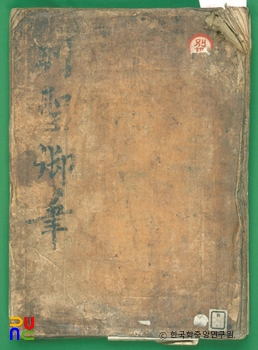 列聖御筆
別
© 한국학중앙연구원